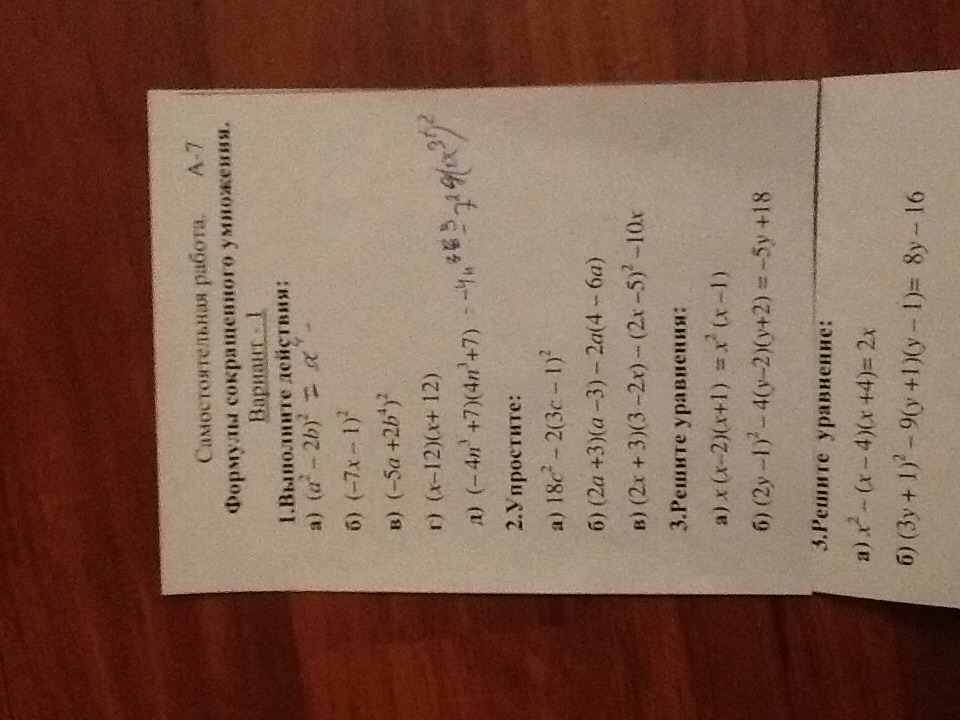 Самостоятельная работа. А-7
Формулы сокращенного умножения.
Вариант - 1
1.Выполните действия:
а) (a² – 2b)² = a⁴ -
б) (–7x – 1)²
в) (–5a +2b⁴)²
г) (x–12)(x+ 12)
д) (– 4n³ +7)(4n³+7) = -4n
2.Упростите:
а) 18c² – 2(3c – 1)²
б) (2a +3)(a –3) – 2a(4 – 6a)
в) (2x + 3)(3 –2x) – (2x –5)² –10x
3.Решите уравнения:
а) x (x–2)(x+1) = x² (x –1)
б) (2y –1)² – 4(y–2)(y+2) = –5y +18
3.Решите уравнение:
а) x² – (x – 4)(x +4)= 2x
б) (3y + 1)² – 9(y +1)(y – 1)= 8y – 16